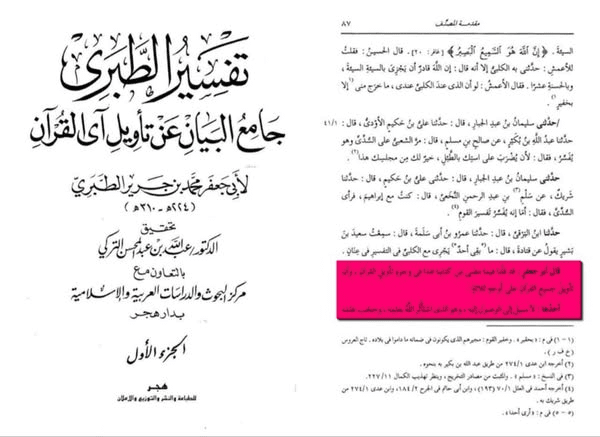 تفسير الطبري
جامع البيان عن تأويل آي القرآن
لأبي جعفر محمد بن جرير الطبري
(٢٢٤هـ - ٣١٠هـ)
تحقيق
الدكتور عبد الله بن عبد المحسن التركي
بالتعاون مع
مركز البحوث والدراسات العربية والإسلامية
بدار هجر
الجزء الأول
هجر
للطباعة والنشر والتوزيع والإعلان
مقدمة المصنف
٨٧
السيئة . ﴿ إِنَّ اللَّهَ هُوَ السَّمِيعُ الْبَصِيرُ ﴾ [غافر : ٢٠] . قال الحسينُ : فقلتُ
للأعمشِ : حدَّثنى به الكلبىُّ إلا أنه قال : إن اللَّهَ قادرٌ أن يَجْزِىَ بالسيئةِ السيئةَ ،
وبالحسنةِ عشرًا . فقال الأعمشُ : لو أن الذى عندَ الكلبىِّ عندى ، ما خرَج منى إلا
بخفيرٍ (١) .
٤١/١ /حدَّثنى سليمانُ بنُ عبدِ الجبارِ ، قال : حدَّثنا علىُّ بنُ حَكيمٍ الأَوْدىُّ ، قال :
حدَّثنا عبدُ اللَّهِ بنُ بُكَيْرٍ ، عن صالحِ بنِ مسلمٍ ، قال : مرَّ الشعبىُّ على السُّدِّىِّ وهو
يُفَسِّرُ ، فقال : لأن يُضْرَبَ على استِك بالطَّبْلِ ، خيرٌ لك مِن مجلسِك هذا (٢) .
حدَّثنى سليمانُ بنُ عبدِ الجبارِ ، قال : حدَّثنا علىُّ بنُ حَكيمٍ ، قال : حدَّثنا
شَريكٌ ، عن سَلْمِ (٣) بنِ عبدِ الرحمنِ النَّخَعىِّ ، قال : كنتُ مع إبراهيمَ ، فرأَى
السُّدِّىَّ ، فقال : أمَا إنه يُفَسِّرُ تفسيرَ القومِ (٤) .
حدَّثنا ابنُ البَرْقىِّ ، قال : حدَّثنا عمرُو بنُ أبى سَلَمةَ ، قال : سمِعتُ سعيدَ بنَ
بَشيرٍ يقولُ عن قتادةَ ، قال : (٥ ما بقِى أحدٌ ٥) يَجْرِى مع الكلبىِّ فى التفسيرِ فى عِنانٍ .
قال أبو جعفرٍ : قد قلنا فيما مضَى مِن كتابِنا هذا فى وجوهِ تأويلِ القرآنِ ، وأن
تأويلَ جميعِ القرآنِ على أوجهٍ ثلاثةٍ
أحدُها : لا سبيلَ إلى الوصولِ إليه ، وهو الذى استأثَر اللَّهُ بعلمِه ، وحجَب علمَه
(١ - ١) فى م : «بحقير» . وخفير القوم : مجيرهم الذى يكونون فى ضمانه ما داموا فى بلاده . تاج العروس
(خ ف ر) .
(٢) أخرجه ابن عدى ٢٧٤/١ من طريق عبد الله بن بكير به بنحوه .
(٣) فى النسخ : «مسلم» . والمثبت من مصادر التخريج ، وينظر تهذيب الكمال ٢٢٧/١١ .
(٤) أخرجه أحمد فى العلل ٧٠/١ (٩٣) ، وابن أبى حاتم فى الجرح ١٨٤/٢ ، وابن عدى ٢٧٤/١ من
طريق شريك به .
(٥ - ٥) فى م : «أرى أحدا» .